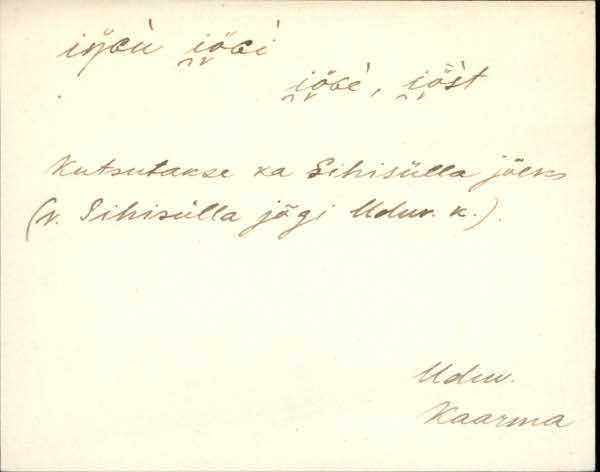 iɣ̄ɢi̇̀ i̯ö̯ɢi
i̯ö̯ɢè, i̯ö̯̀st
Kutsutakse ka Sihisülla jõeks
(v. Sihisülla jõgi Uduv. k.).
Uduv.
Kaarma